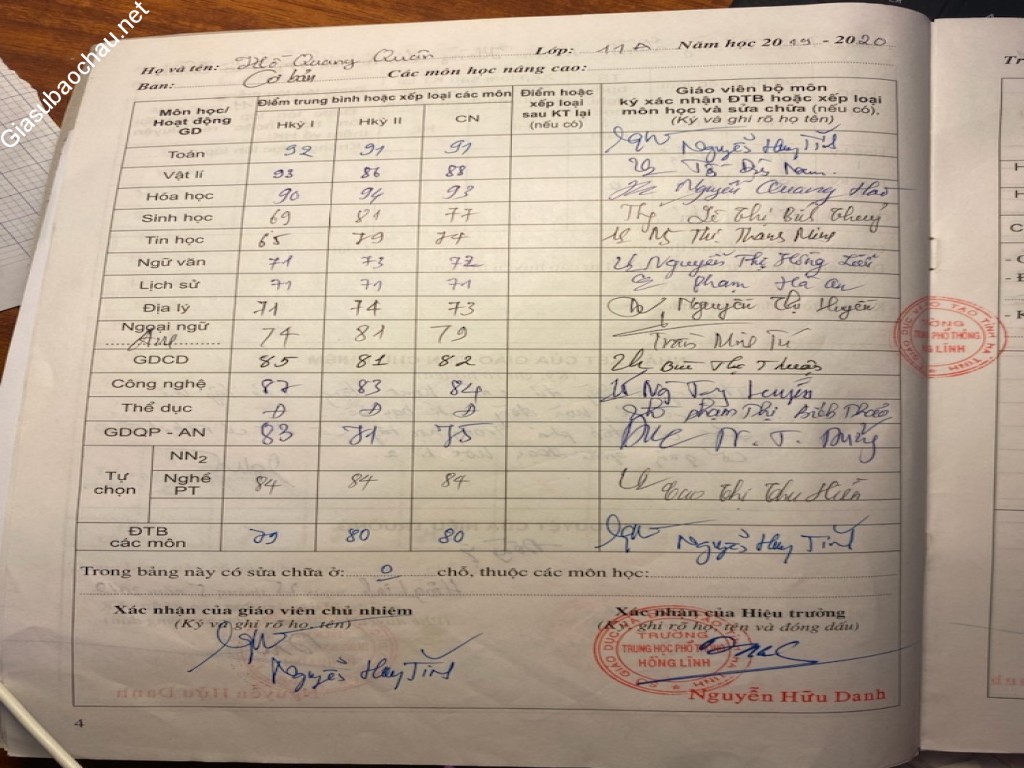 Giasubaochau.net
Họ và tên: Hồ Quang Quân Lớp: 11A Năm học 2019 - 2020
Ban: Cơ bản Các môn học nâng cao:
Môn học/ Hoạt động GD
Điểm trung bình hoặc xếp loại các môn
Hkỳ I Hkỳ II CN
Điểm hoặc xếp loại sau KT lại (nếu có)
Giáo viên bộ môn ký xác nhận ĐTB hoặc xếp loại môn học và sửa chữa (nếu có),
(Ký và ghi rõ họ tên)
Toán 92 91 91 Nguyễn Huy Tĩnh
Vật lí 93 86 88 Nam
Hóa học 90 94 93 Nguyễn Quang Hào
Sinh học 69 81 77 Lê Thị Bích Thuỷ
Tin học 65 79 74 Thị
Ngữ văn 71 73 72 Nguyễn Thị Hồng
Lịch sử 71 71 71 Phạm Hà An
Địa lý 71 74 73 Nguyễn Thị Huyền
Ngoại ngữ Anh 74 81 79 Trần Minh Tú
GDCD 85 81 82 Bùi Thị
Công nghệ 87 83 84
Thể dục Đ Đ Đ Phạm Thị Bích Thảo
GDQP - AN 83 71 75 N. T. Dũng
Tự chọn
NN2
Nghề PT 84 84 84 Thị Thu Hiền
ĐTB các môn 79 80 80 Nguyễn Huy Tĩnh
Trong bảng này có sửa chữa ở: 0 chỗ, thuộc các môn học:
Xác nhận của giáo viên chủ nhiệm
(Ký và ghi rõ họ, tên)
Nguyễn Huy Tĩnh
Xác nhận của Hiệu trưởng
(Ký, ghi rõ họ, tên và đóng dấu)
TRƯỜNG
TRUNG HỌC PHỔ THÔNG
HỒNG LĨNH
Nguyễn Hữu Danh
4